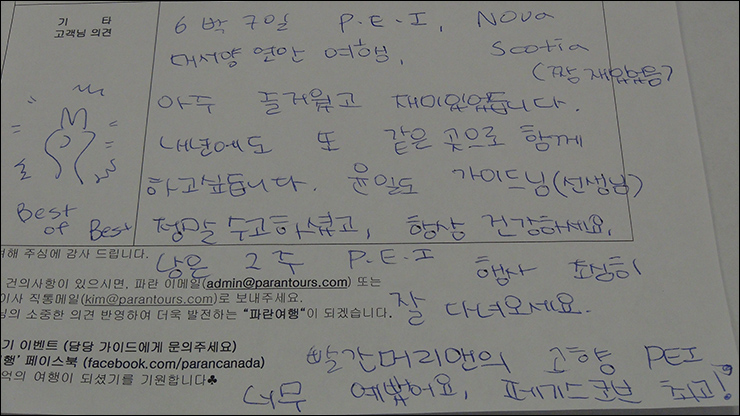 기 타
고객님 의견
6박 7일 P.E.I, NOVA
대서양 연안 여행, Scotia
(짱 재밌었음)
아주 즐거웠고 재미있었습니다.
내년에도 또 같은 곳으로 함께
하고싶습니다. 윤일도 가이드님(선생님)
정말 수고하셨고, 항상 건강하세요,
남은 2주 P.E.I 행사 조심히
잘 다녀오세요.
빨간머리앤의 고향 PEI
너무 예뻤어요, 페기스코브 최고!
Best
of Best
여해 주심에 감사 드립니다.
건의사항이 있으시면, 파란 이메일(admin@parantours.com) 또는
이사 직통메일(kim@parantours.com)로 보내주세요.
님의 소중한 의견 반영하여 더욱 발전하는 "파란여행"이 되겠습니다.
기 이벤트 (담당 가이드에게 문의주세요)
행' 페이스북 (facebook.com/parancanada)
억의 여행이 되셨기를 기원합니다♣